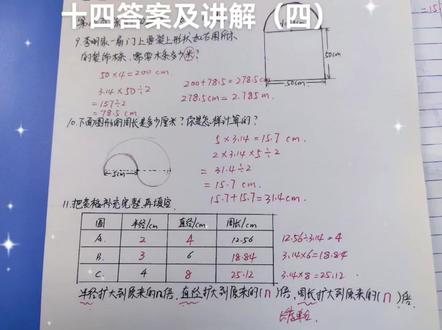 十四答案及讲解（四）
9.李明家一扇门上要装上形状如右图所示
的装饰木条，需要木条多少米？
50×4=200cm
3.14×50÷2
=157÷2
=78.5cm
200+78.5=278.5cm
278.5cm=2.785m.
50cm
50cm
10.下面图形的周长是多少厘米？你是怎样计算的？
5cm
5×3.14=15.7cm.
2×3.14×5÷2
=31.4÷2
=15.7cm.
15.7+15.7=31.4cm
11.把表格补充完整,再填空.
圆 半径/cm 直径/cm 周长/cm
A. 2 4 12.56
B. 3 6 18.84
C. 4 8 25.12
12.56÷3.14=4
3.14×6=18.84
3.14×8=25.12
半径扩大到原来的n倍,直径扩大到原来的(n)倍,周长扩大到原来的(n)倍.